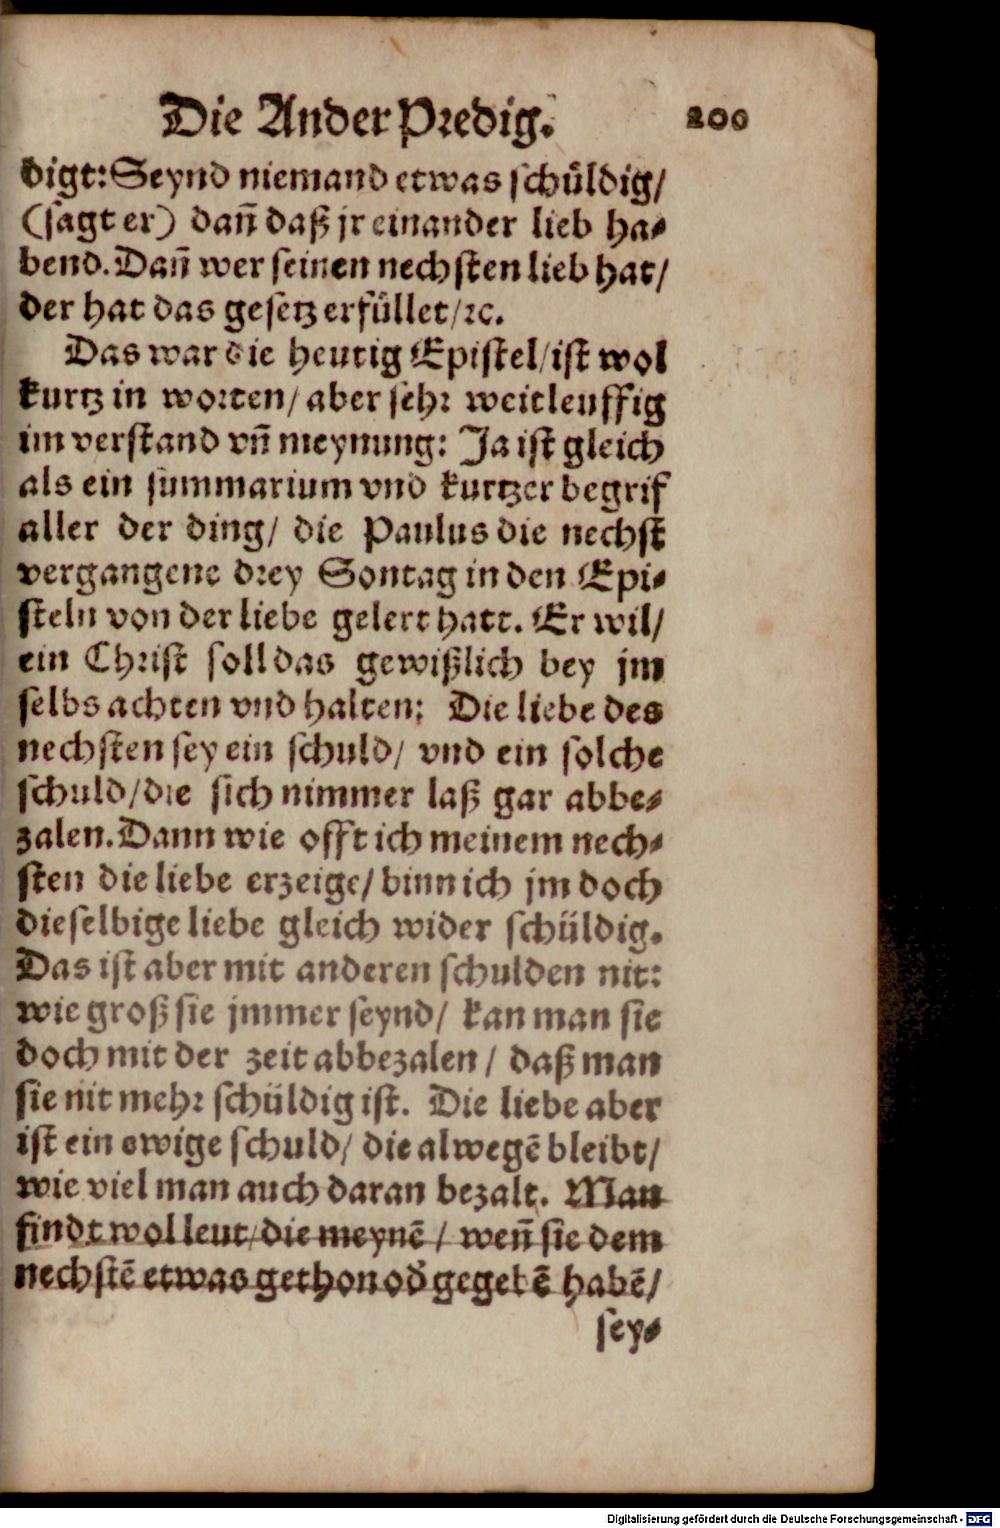 Die Ander Predig. 200
digt: Seynd niemand etwas schüldig/
(sagt er) dañ daß jr einander lieb ha-
bend. Dañ wer seinen nechsten lieb hat/
der hat das gesetz erfüllet/ ꝛc.
Das war die heutig Epistel/ ist wol
kurtz in worten/ aber sehr weitleuffig
im verstand vñ meynung: Ja ist gleich
als ein summarium vnd kurtzer begrif
aller der ding/ die Paulus die nechst
vergangene drey Sontag in den Epi-
steln von der liebe gelert hatt. Er wil/
ein Christ soll das gewißlich bey jm
selbs achten vnd halten: Die liebe des
nechsten sey ein schuld/ vnd ein solche
schuld/ die sich nimmer laß gar abbe-
zalen. Dann wie offt ich meinem nech-
sten die liebe erzeige/ binn ich jm doch
dieselbige liebe gleich wider schüldig.
Das ist aber mit anderen schulden nit:
wie groß sie jmmer seynd/ kan man sie
doch mit der zeit abbezalen/ daß man
sie nit mehr schüldig ist. Die liebe aber
ist ein ewige schuld/ die alwegē bleibt/
wie viel man auch daran bezalt. Man
findt wol leut/ die meynē/ weñ sie dem
nechstē etwas gethon od̃ gegebē habē/
sey-
Digitalisierung gefördert durch die Deutsche Forschungsgemeinschaft - DFG